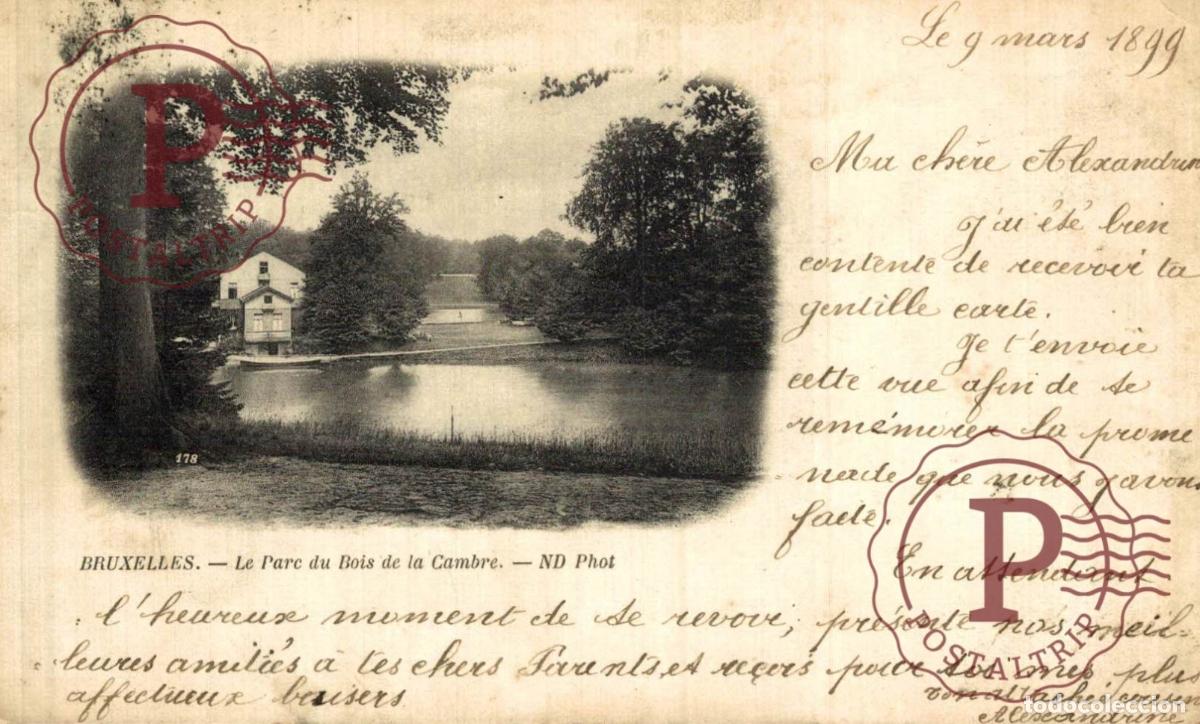 Le 9 mars 1899
Ma chère Alexandrin
j'ai été bien
contente de recevoir ta
gentille carte.
Je t'envoie
cette vue afin de te
remémorer la prome
nade que nous y avons
faite.
En attendant
178
BRUXELLES. — Le Parc du Bois de la Cambre. — ND Phot
l'heureux moment de te revoir, présente nos meil-
leures amitiés à tes chers Parents, et reçois pour plus
affectueux baisers
P
POSTALTRIP
P
POSTALTRIP
todocoleccion